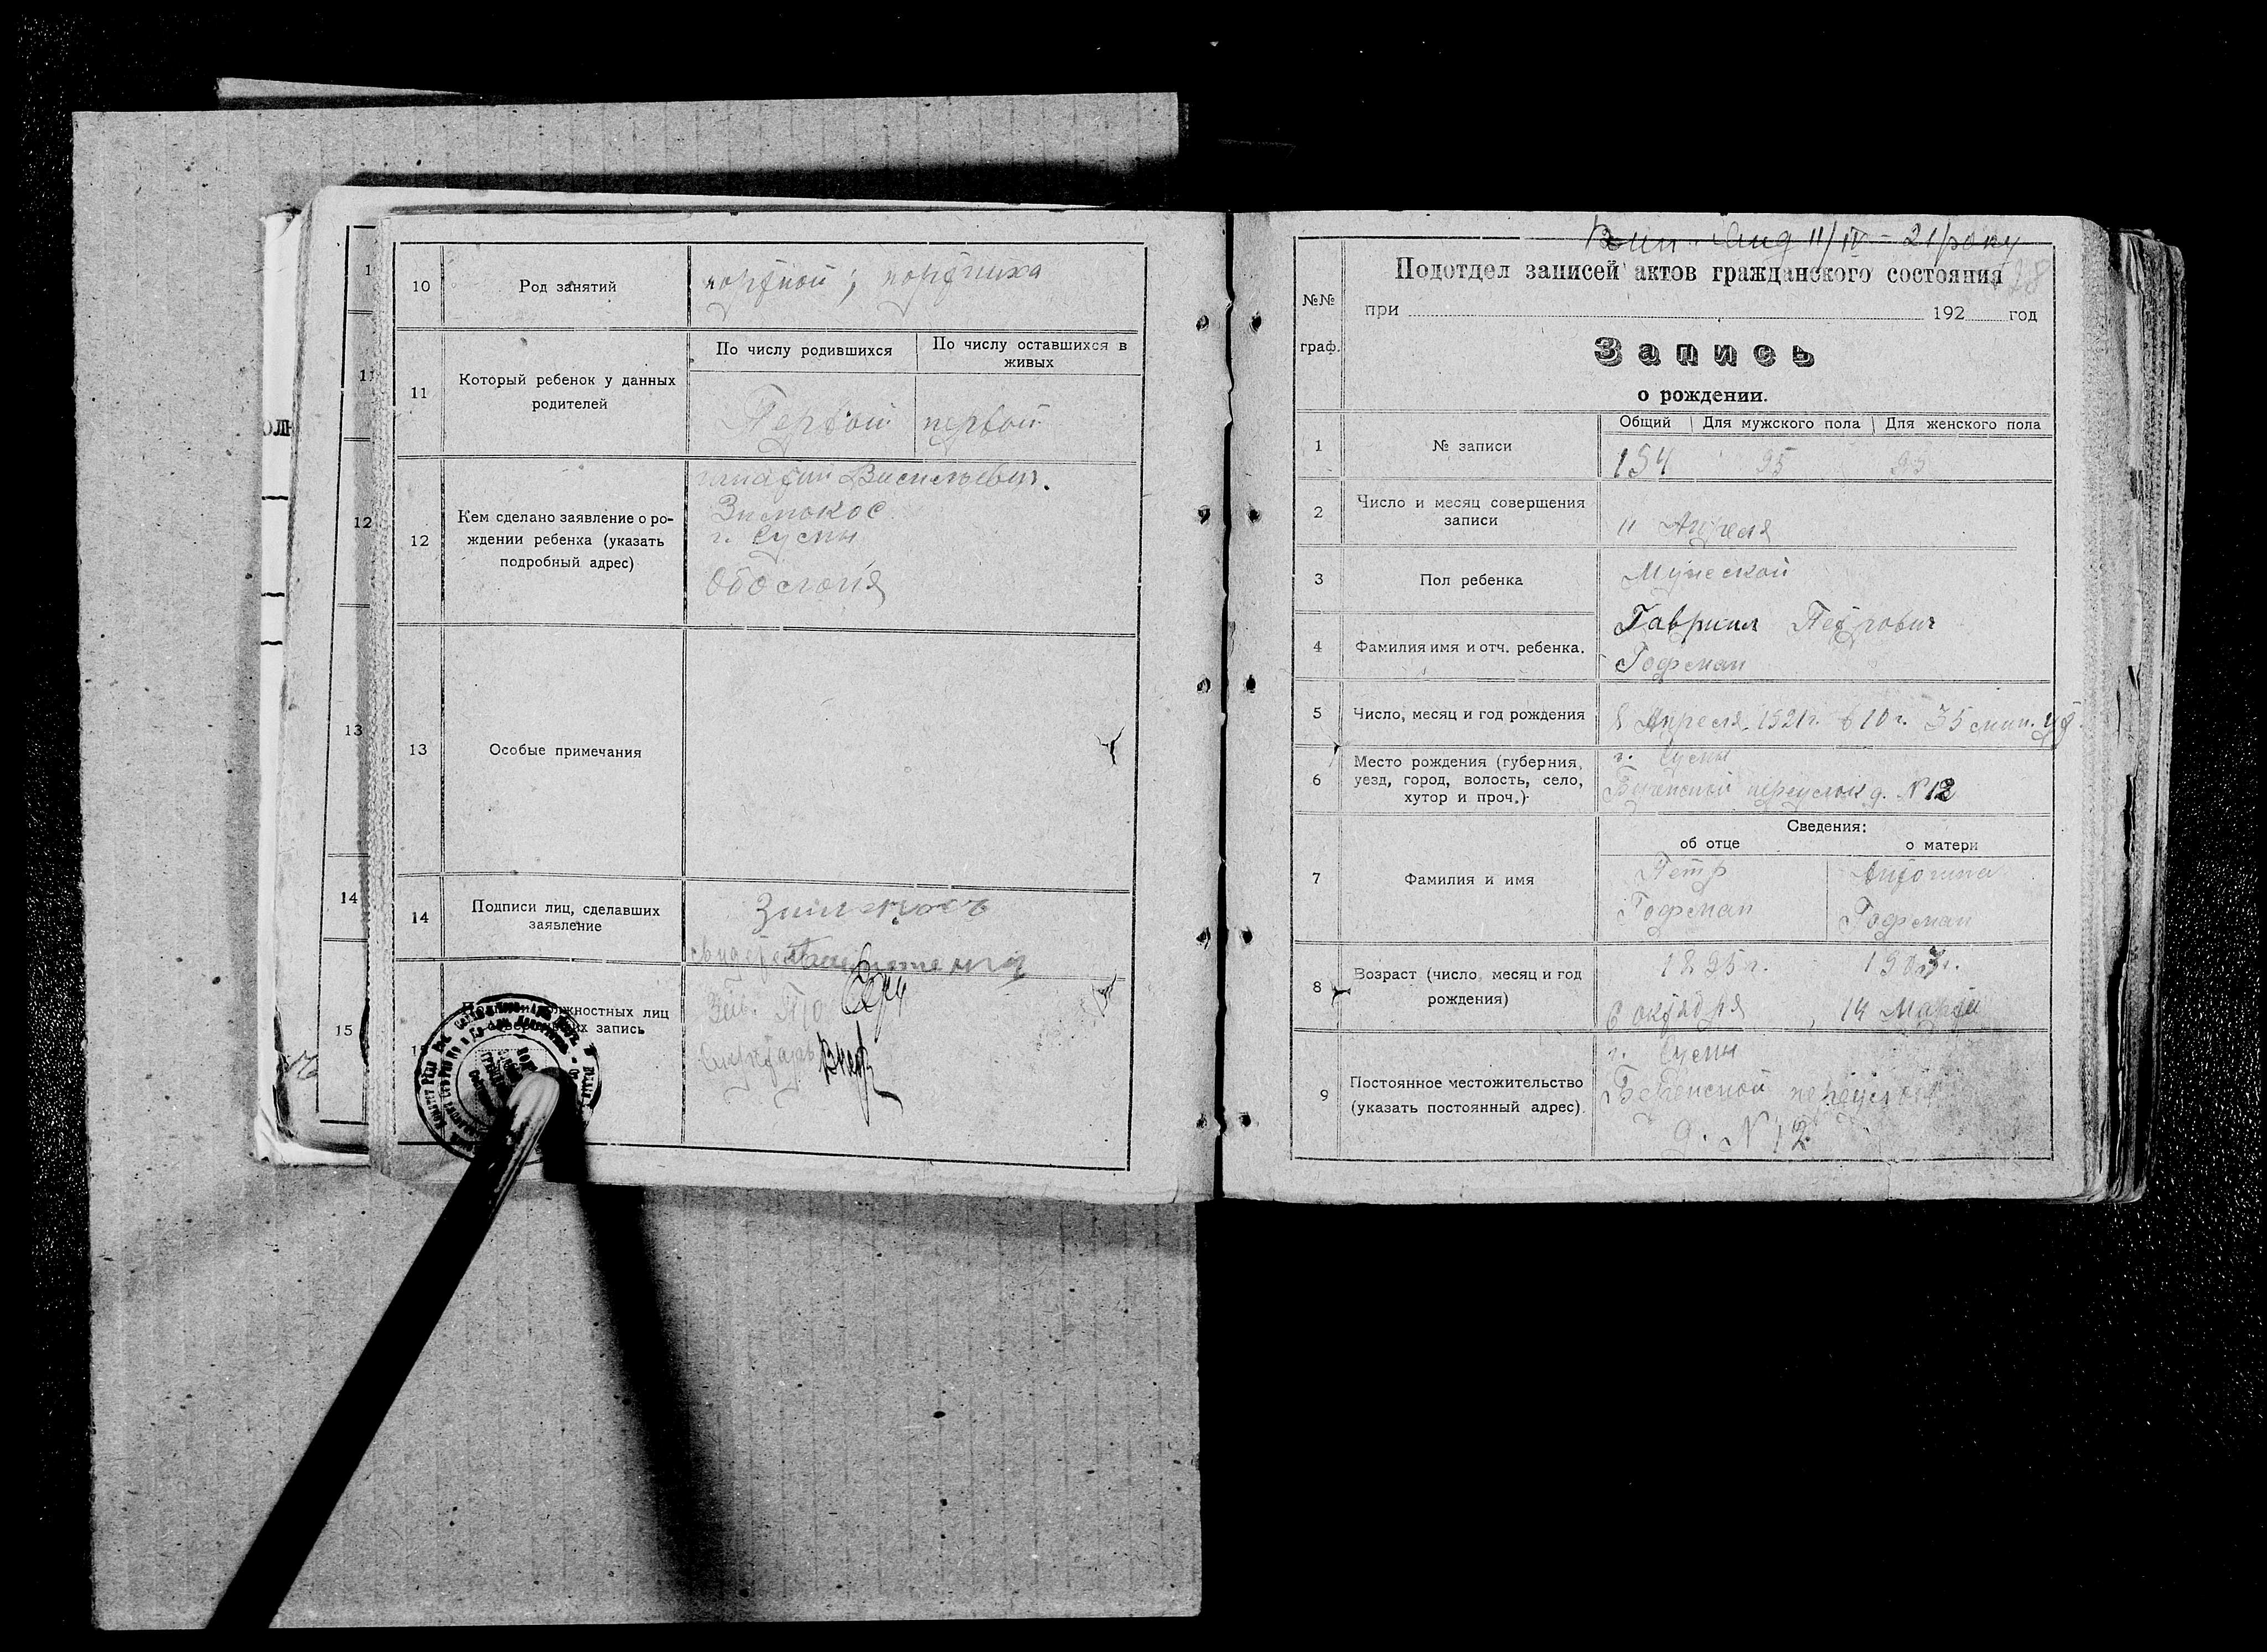 10
Род занятий
портной; портниха
11
Который ребенок у данных
родителей
По числу родившихся
По числу оставшихся в
живых
Первый
первый
12
Кем сделано заявление о ро-
ждении ребенка (указать
подробный адрес)
Васильевич.
Зимокос
г. Сумы
13
Особые примечания
14
Подписи лиц, сделавших
заявление
15
жностных лиц
их запись
Зав. П/О
Секретарь
11
12
13
14
15
11/IV - 21 року
№№
граф.
Подотдел записей актов гражданского состояния
при 192 год
Запись
о рождении.
1
№ записи
Общий
Для мужского пола
Для женского пола
194 95 99
2
Число и месяц совершения
записи
11 Апреля
3
Пол ребенка
Мужской
4
Фамилия имя и отч. ребенка.
Гавриил Петрович
Гофман
5
Число, месяц и год рождения
Апреля 1921 г. в 10 г. 35 мин.
6
Место рождения (губерния,
уезд, город, волость, село,
хутор и проч.)
г. Сумы
переулок д. № 12
Сведения:
об отце
о матери
7
Фамилия и имя
Петр
Гофман
Антонина
Гофман
8
Возраст (число, месяц и год
рождения)
1895 г.
6 октября
14 Марта
9
Постоянное местожительство
(указать постоянный адрес).
г. Сумы
переулок
д. № 12